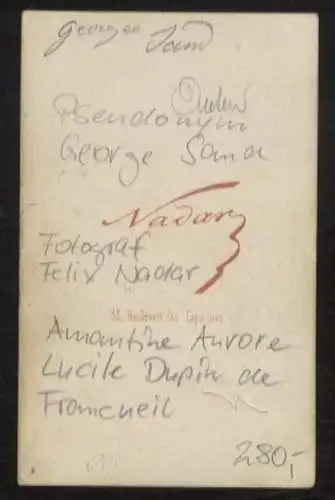 Georges Sand
Autor
Pseudonym
George Sand
Nadar
Fotograf
Felix Nadar
35, Boulevart des Capucines
Amantine Aurore
Lucile Dupin de
Francueil
280,-